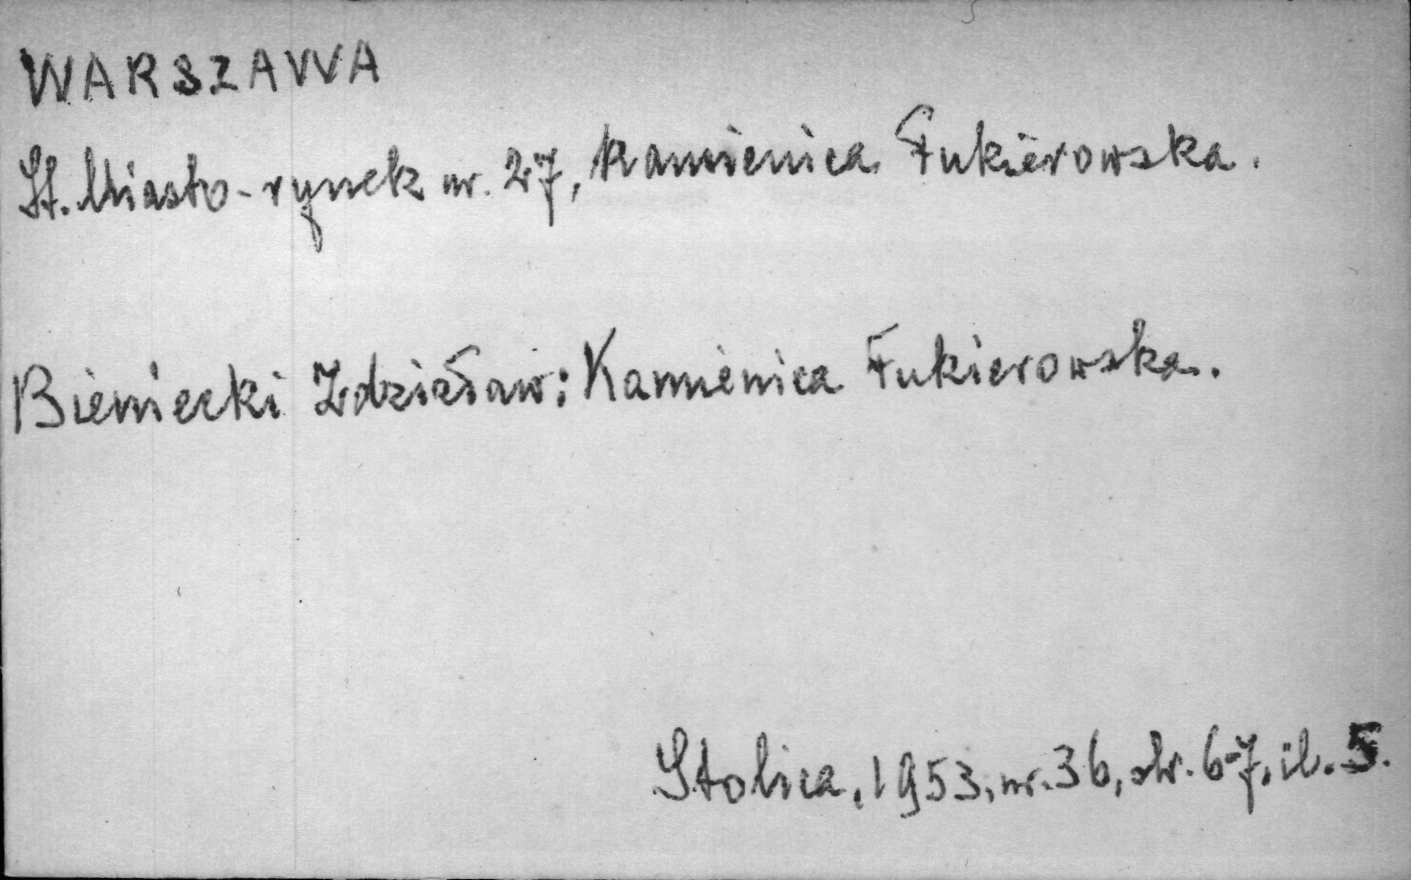 WARSZAWA
St. Miasto - rynek nr. 27, Kamienica Fukierowska.
Bieniecki Zdzisław: Kamienica Fukierowska.
Stolica, 1953, nr. 36, str. 6-7, il. 5.